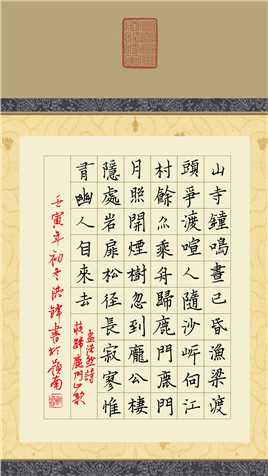 山寺鐘鳴晝已昏漁梁渡
頭爭渡喧人隨沙岍向江
村餘亦乘舟歸鹿門鹿門
月照開煙樹忽到龐公棲
隱處岩扉松徑長寂寥惟
有幽人自來去
孟浩然詩
歸鹿門山歌
壬寅年初冬洪鋒書於嶺南